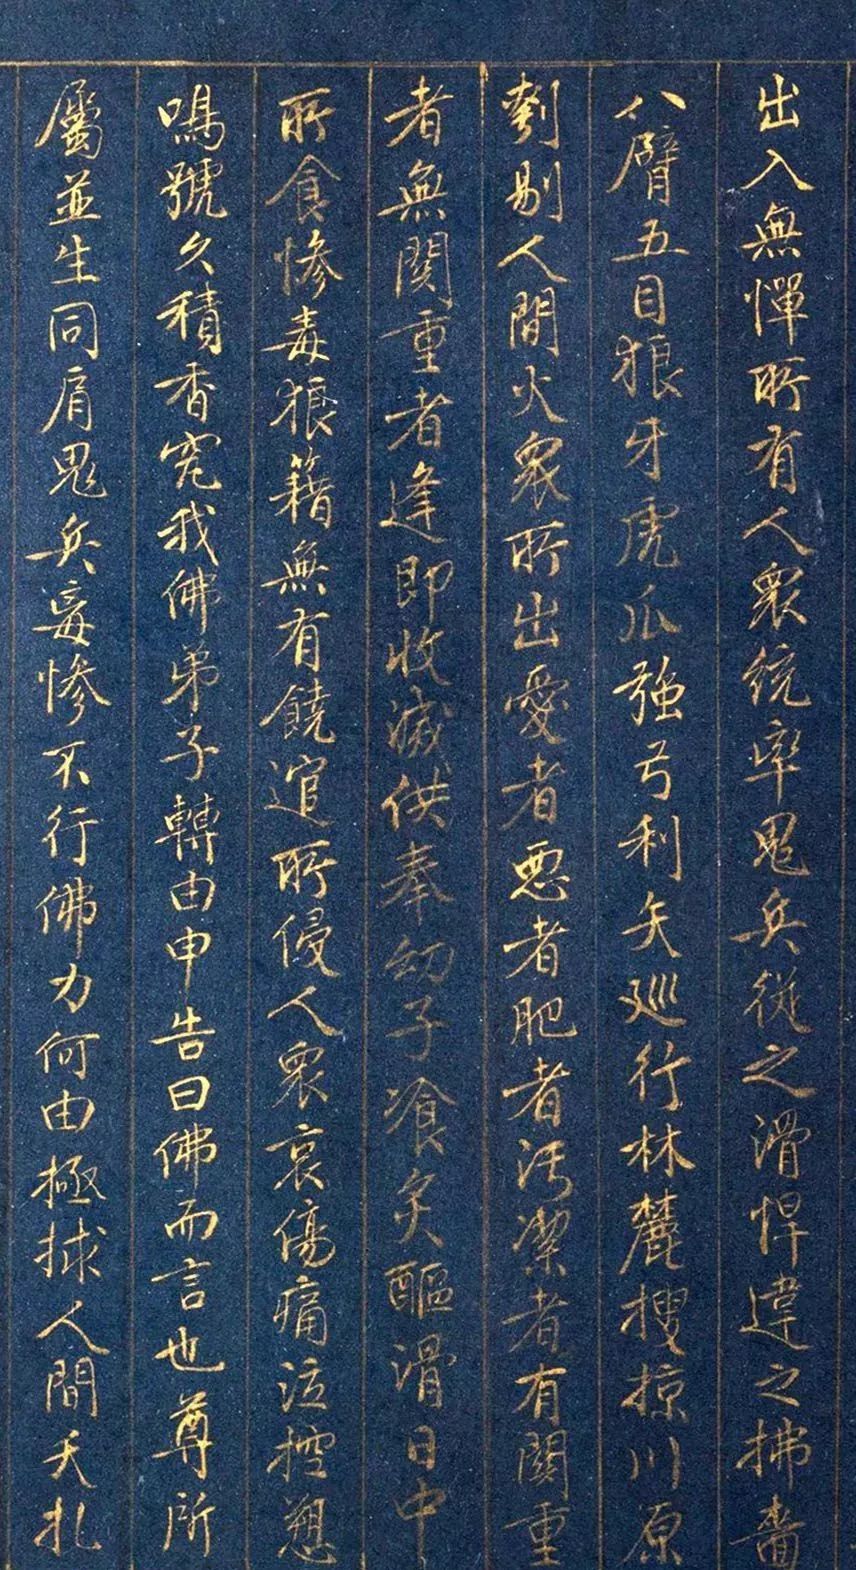 出入無憚所有人眾統率鬼兵從之滑悍違之拂嗇
八臂五目狼牙虎爪強弓利矢巡行林麓搜掠川原
剗剔人間火眾所出愛者惡者肥者污潔者有關重
者無関重者逢即收滅供奉幼子飡炙醧滑日中
所食慘毒狼籍無有饒逭所侵人眾哀傷痛泣控愬
鳴號久積香冤我佛弟子轉由申告曰佛而言也尊所
屬並生同肩鬼兵毒慘不行佛力何由極捄人間夭札